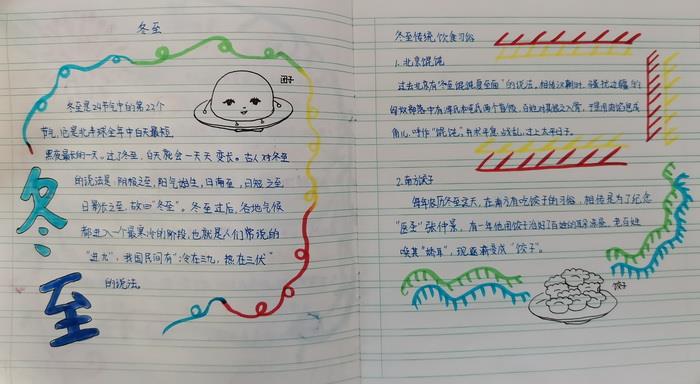 冬至
团子
冬至是24节气中的第22个
节气,它是北半球全年中白天最短
黑夜最长的一天。过了冬至,白天就会一天天变长。古人对冬至
的说法是:阴极之至,阳气始生,日南至,日短之至
日影长之至,故曰"冬至"。冬至过后,各地气候
都进入一个最寒冷的阶段,也就是人们常说的
"进九",我国民间有"冷在三九,热在三伏"
的说法。
冬至
冬至传统饮食习俗
1.北京馄饨
过去北京有"冬至馄饨夏至面"的说法。相传汉朝时,
匈奴部落中有浑氏和屯氏两个首领,百姓对其恨之入骨,于是用肉馅包成
角儿,呼作"馄饨",求平息战乱,过上太平日子。
2.南方饺子
每年农历冬至这天,在南方有吃饺子的习俗,相传是为了纪念
"医圣"张仲景,有一年他用饺子治好了百姓的耳朵,老百姓
唤其"娇耳",现逐渐变成"饺子"。
饺子